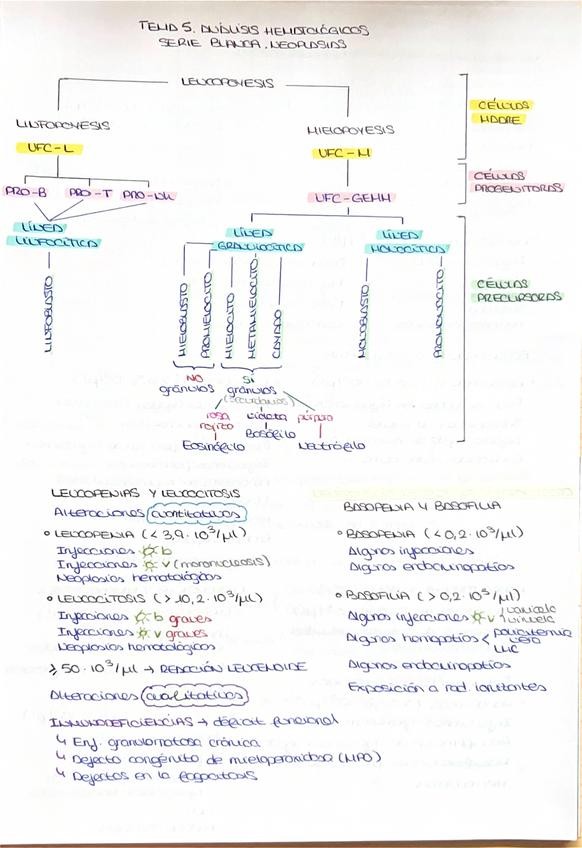 TEMA 5. ANÁLISIS HEMATOLÓGICOS
SERIE BLANCA. NEOPLASIAS
LEUCOPOYESIS
LINFOPOYESIS
MIELOPOYESIS
CÉLULAS
MADRE
UFC-L
UFC-M
PRO-B PRO-T PRO-NK
UFC-GEMM
CÉLULAS
PROGENITORAS
LÍNEA
LINFOCÍTICA
LÍNEA
GRANULOCÍTICA
LÍNEA
MONOCÍTICA
LINFOBLASTO
MIELOBLASTO
PROMIELOCITO
MIELOCITO
METAMIELOCITO
CAYADO
MONOBLASTO
PROMONOCITO
CÉLULAS
PRECURSORAS
NO
gránulos
SÍ
gránulos
(secundarios)
rosa
rojito
violeta
púrpura
Eosinófilo
Basófilo
Neutrófilo
LEUCOPENIAS Y LEUCOCITOSIS
Alteraciones cuantitativas
° LEUCOPENIA (< 3,9 · 10³/µl)
Infecciones b
Infecciones v (mononucleosis)
Neoplasias hematológicas
° LEUCOCITOSIS (> 10,2 · 10³/µl)
Infecciones b graves
Infecciones v graves
Neoplasias hematológicas
≥ 50 · 10³/µl → REACCIÓN LEUCEMOIDE
Alteraciones cualitativas
INMUNODEFICIENCIAS → déficit funcional
↳ Enf. granulomatosa crónica
↳ Defecto congénito de mieloperoxidasa (MPO)
↳ Defectos en la fagocitosis
BASOPENIA Y BASOFILIA
° BASOPENIA (< 0,2 · 10³/µl)
Algunas infecciones
Algunas endocrinopatías
° BASOFILIA (> 0,2 · 10³/µl)
Algunas infecciones v varicela
viruela
Algunas hemopatías < policitemia
vera
LMC
Algunas endocrinopatías
Exposición a rad. ionizantes